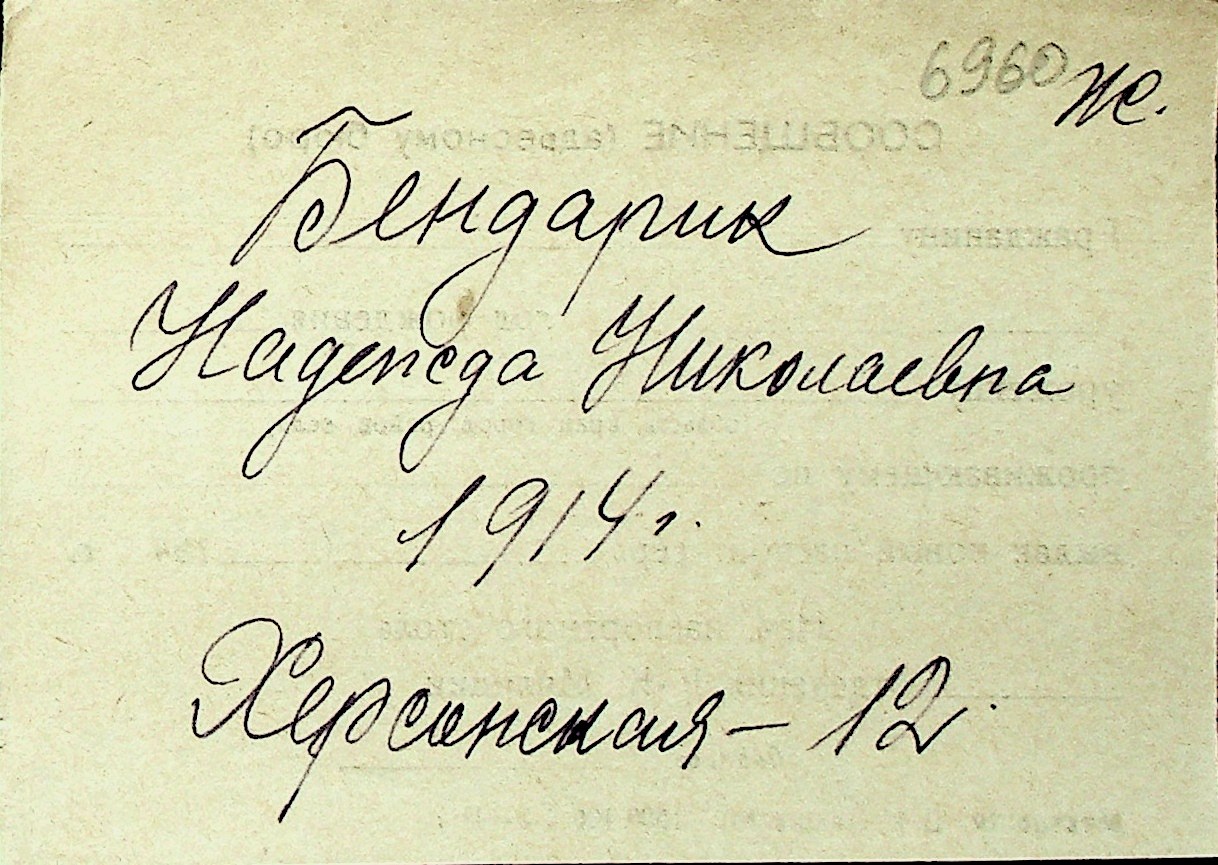 6960 Ж.
Бендарик
Надежда Николаевна
1914 г.
Херсонская – 12.